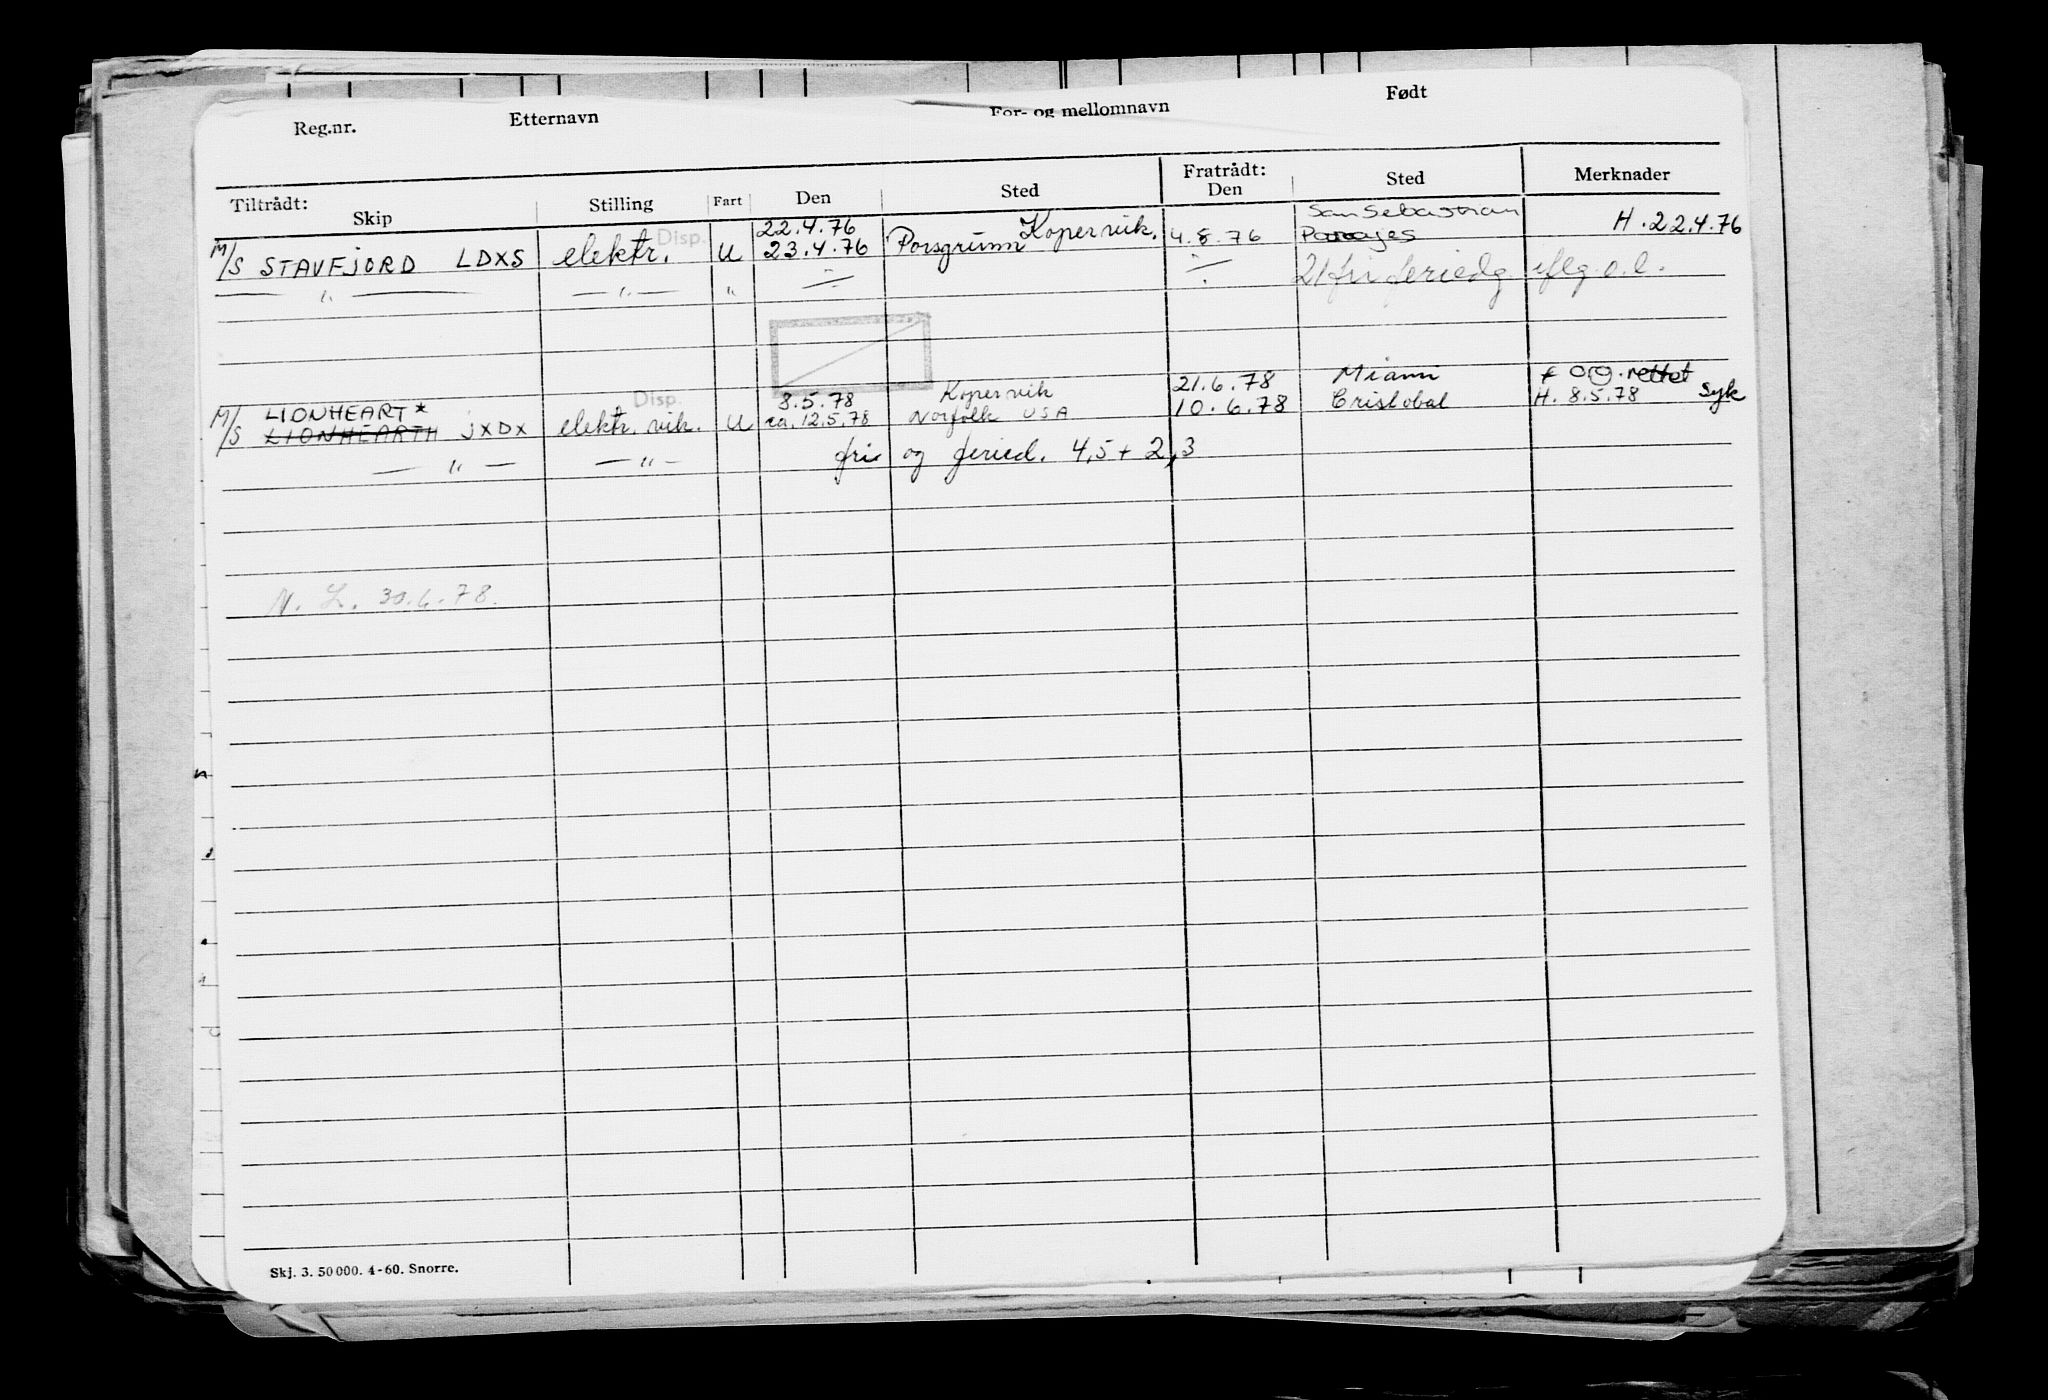 Reg.nr. Etternavn For- og mellomnavn Født
Tiltrådt: Skip Stilling Fart Den Sted Fratrådt: Den Sted Merknader
22.4.76 Kopervik. San Sebastian H. 22.4.76
M/S STAVFJORD LDXS elektr. Disp. U 23.4.76 Porsgrunn 4.8.76
— " — — " — " 21 fri feriedg iflg. o.l.
8.5.78 Kopervik 21.6.78 Miami rettet
M/S LIONHEART* Disp.
LIONHEARTH JXDX elektr. vik. U ca. 12.5.78 Norfolk USA 10.6.78 Cristobal H. 8.5.78 Syk
— " — — " — fri og feried. 4,5 + 2,3
N. L. 30.6.78.
Skj. 3. 50 000. 4-60. Snorre.